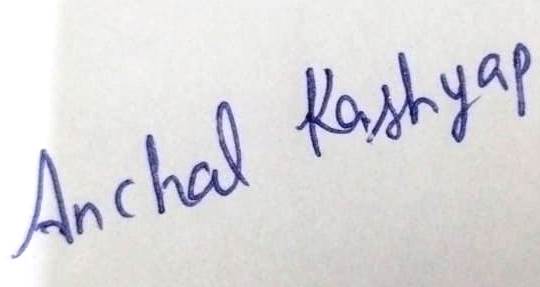 Anchal Kashyap